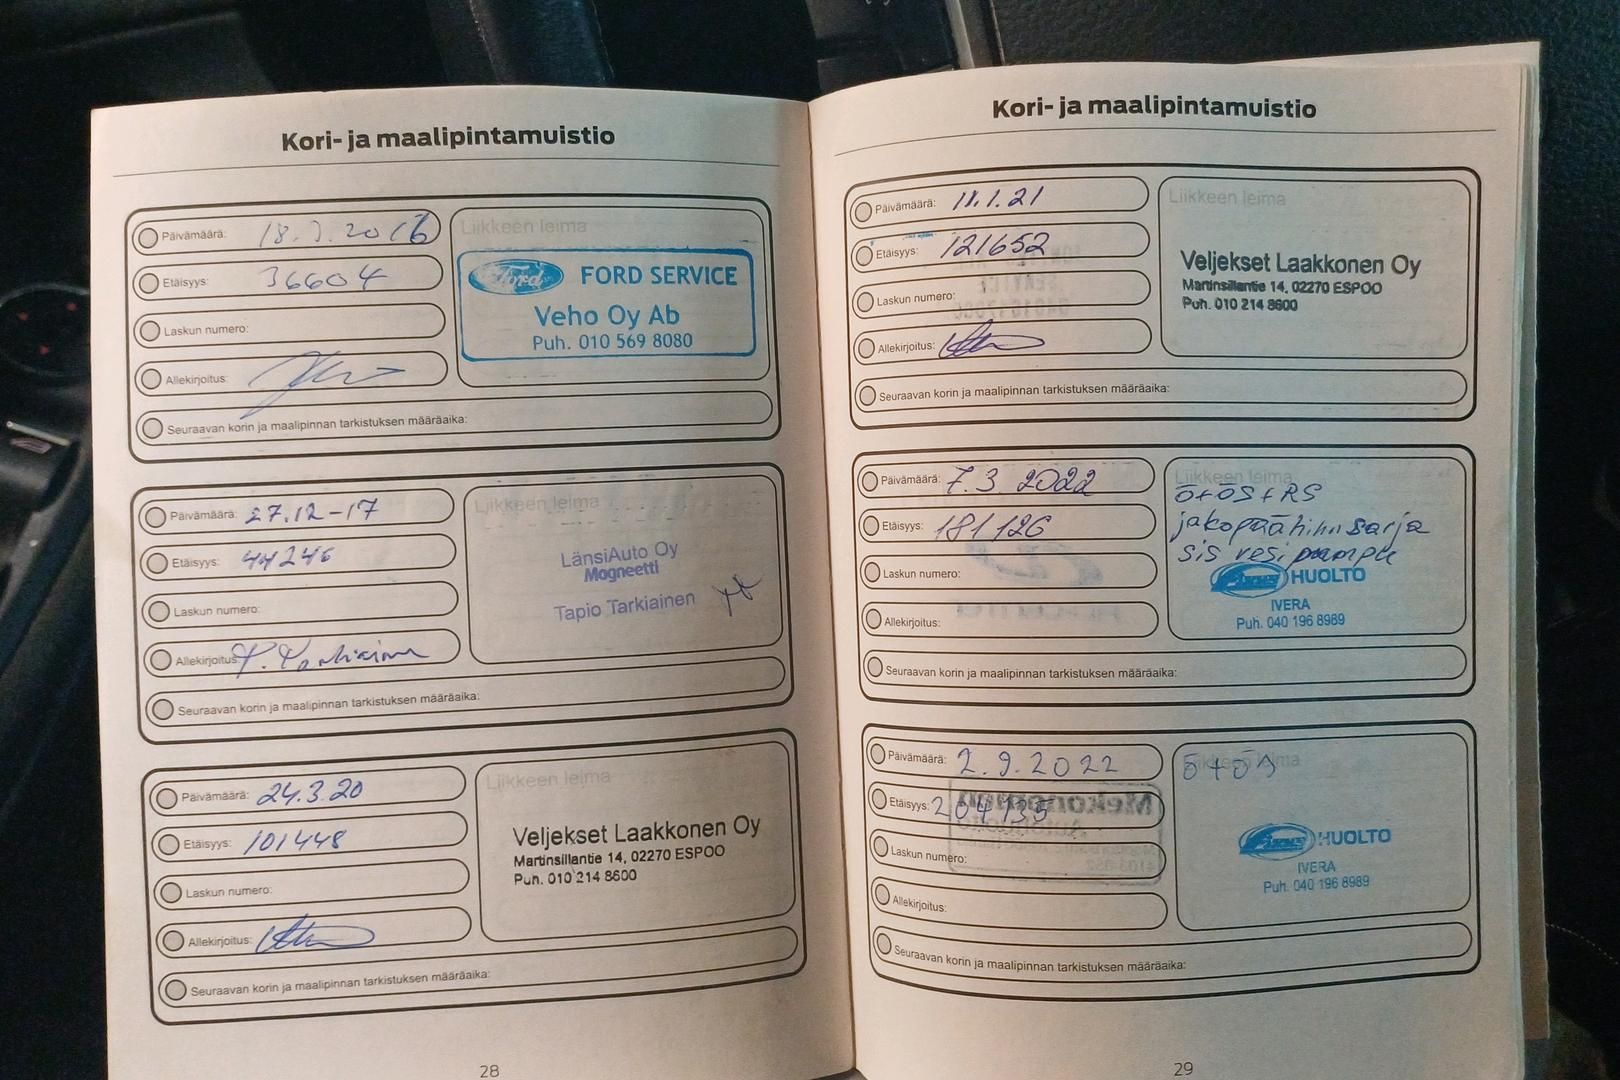 Kori- ja maalipintamuistio
Päivämäärä: 18.7.2016
Etäisyys: 36604
Laskun numero:
Allekirjoitus:
Liikkeen leima
Ford FORD SERVICE
Veho Oy Ab
Puh. 010 569 8080
Seuraavan korin ja maalipinnan tarkistuksen määräaika:
Päivämäärä: 27.12-17
Etäisyys: 44246
Laskun numero:
Allekirjoitus: T. Tarkiainen
Liikkeen leima
LänsiAuto Oy
Mogneetti
Tapio Tarkiainen
Seuraavan korin ja maalipinnan tarkistuksen määräaika:
Päivämäärä: 24.3.20
Etäisyys: 101448
Laskun numero:
Allekirjoitus:
Liikkeen leima
Veljekset Laakkonen Oy
Martinsillantie 14, 02270 ESPOO
Puh. 010 214 8600
Seuraavan korin ja maalipinnan tarkistuksen määräaika:
28
Kori- ja maalipintamuistio
Päivämäärä: 11.1.21
Etäisyys: 121652
Laskun numero:
Allekirjoitus:
Liikkeen leima
Veljekset Laakkonen Oy
Martinsillantie 14, 02270 ESPOO
Puh. 010 214 8600
Seuraavan korin ja maalipinnan tarkistuksen määräaika:
Päivämäärä: 7.3 2022
Etäisyys: 181126
Laskun numero:
Allekirjoitus:
Liikkeen leima
Ö+ÖS+RS
jakopäähihnasarja
sis vesipumpu
HUOLTO
IVERA
Puh. 040 196 8989
Seuraavan korin ja maalipinnan tarkistuksen määräaika:
Päivämäärä: 2.9.2022
Etäisyys: 204135
Laskun numero:
Allekirjoitus:
Liikkeen leima
Ö+ÖS
HUOLTO
IVERA
Puh. 040 196 8989
Seuraavan korin ja maalipinnan tarkistuksen määräaika:
29